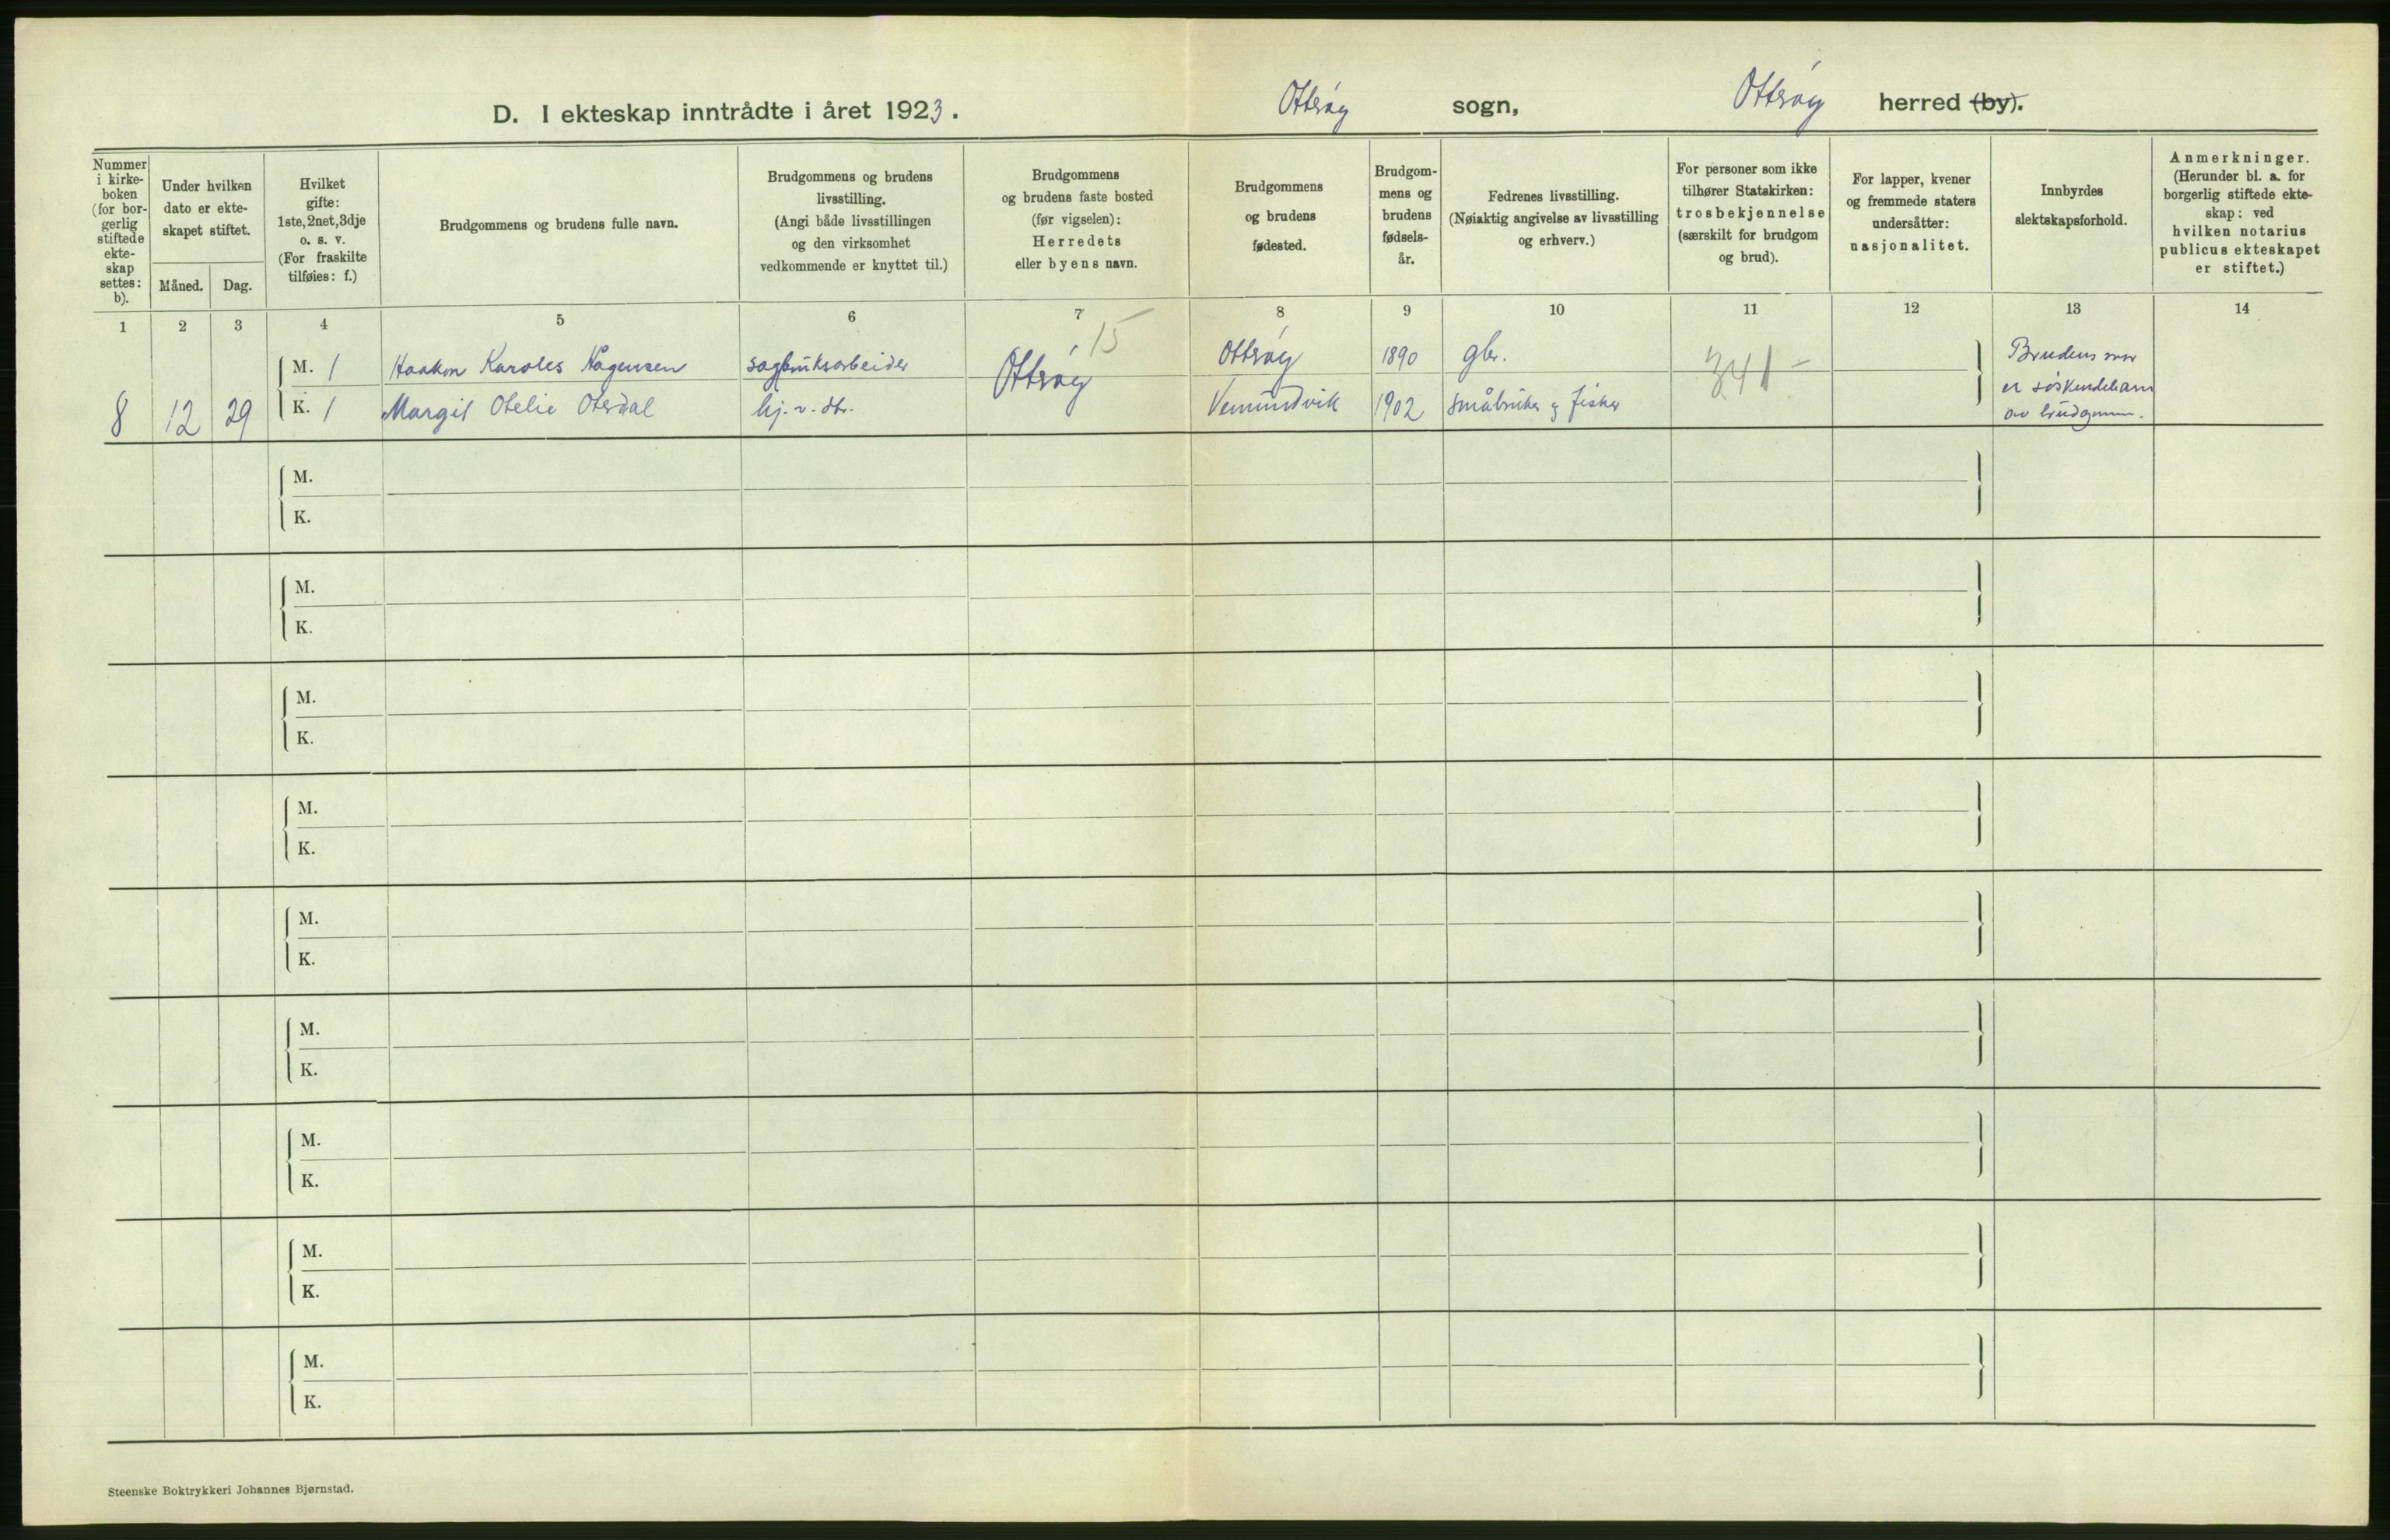 D. I ekteskap inntrådte i året 1923.
Otterøy sogn, Otterøy herred (by).
Nummer i kirke-boken (for bor-gerlig stiftede ekte-skap settes: b).
Under hvilken dato er ekte-skapet stiftet.
Måned. Dag.
Hvilket gifte: 1ste, 2net, 3dje o. s. v. (For fraskilte tilføies: f.)
Brudgommens og brudens fulle navn.
Brudgommens og brudens livsstilling. (Angi både livsstillingen og den virksomhet vedkommende er knyttet til.)
Brudgommens og brudens faste bosted (før vigselen): Herredets eller byens navn.
Brudgommens og brudens fødested.
Brudgom-mens og brudens fødsels-år.
Fedrenes livsstilling. (Nøiaktig angivelse av livsstilling og erhverv.)
For personer som ikke tilhører Statskirken: trosbekjennelse (særskilt for brudgom og brud).
For lapper, kvener og fremmede staters undersåtter: nasjonalitet.
Innbyrdes slektskapsforhold.
Anmerkninger. (Herunder bl. a. for borgerlig stiftede ekte-skap: ved hvilken notarius publicus ekteskapet er stiftet.)
1 2 3 4 5 6 7 8 9 10 11 12 13 14
15
M. 1 Haakon Karoles Hågensen sagbruksarbeider Otterøy Otterøy 1890 gbr. 341 - Brudens mor
er söskendebarn
8 12 29 K. 1 Margit Otelie Otesdal hj. v. dtr. Vemundvik 1902 småbruker og fisker av brudgomm.
M.
K.
M.
K.
M.
K.
M.
K.
M.
K.
M.
K.
M.
K.
M.
K.
M.
K.
Steenske Boktrykkeri Johannes Bjørnstad.